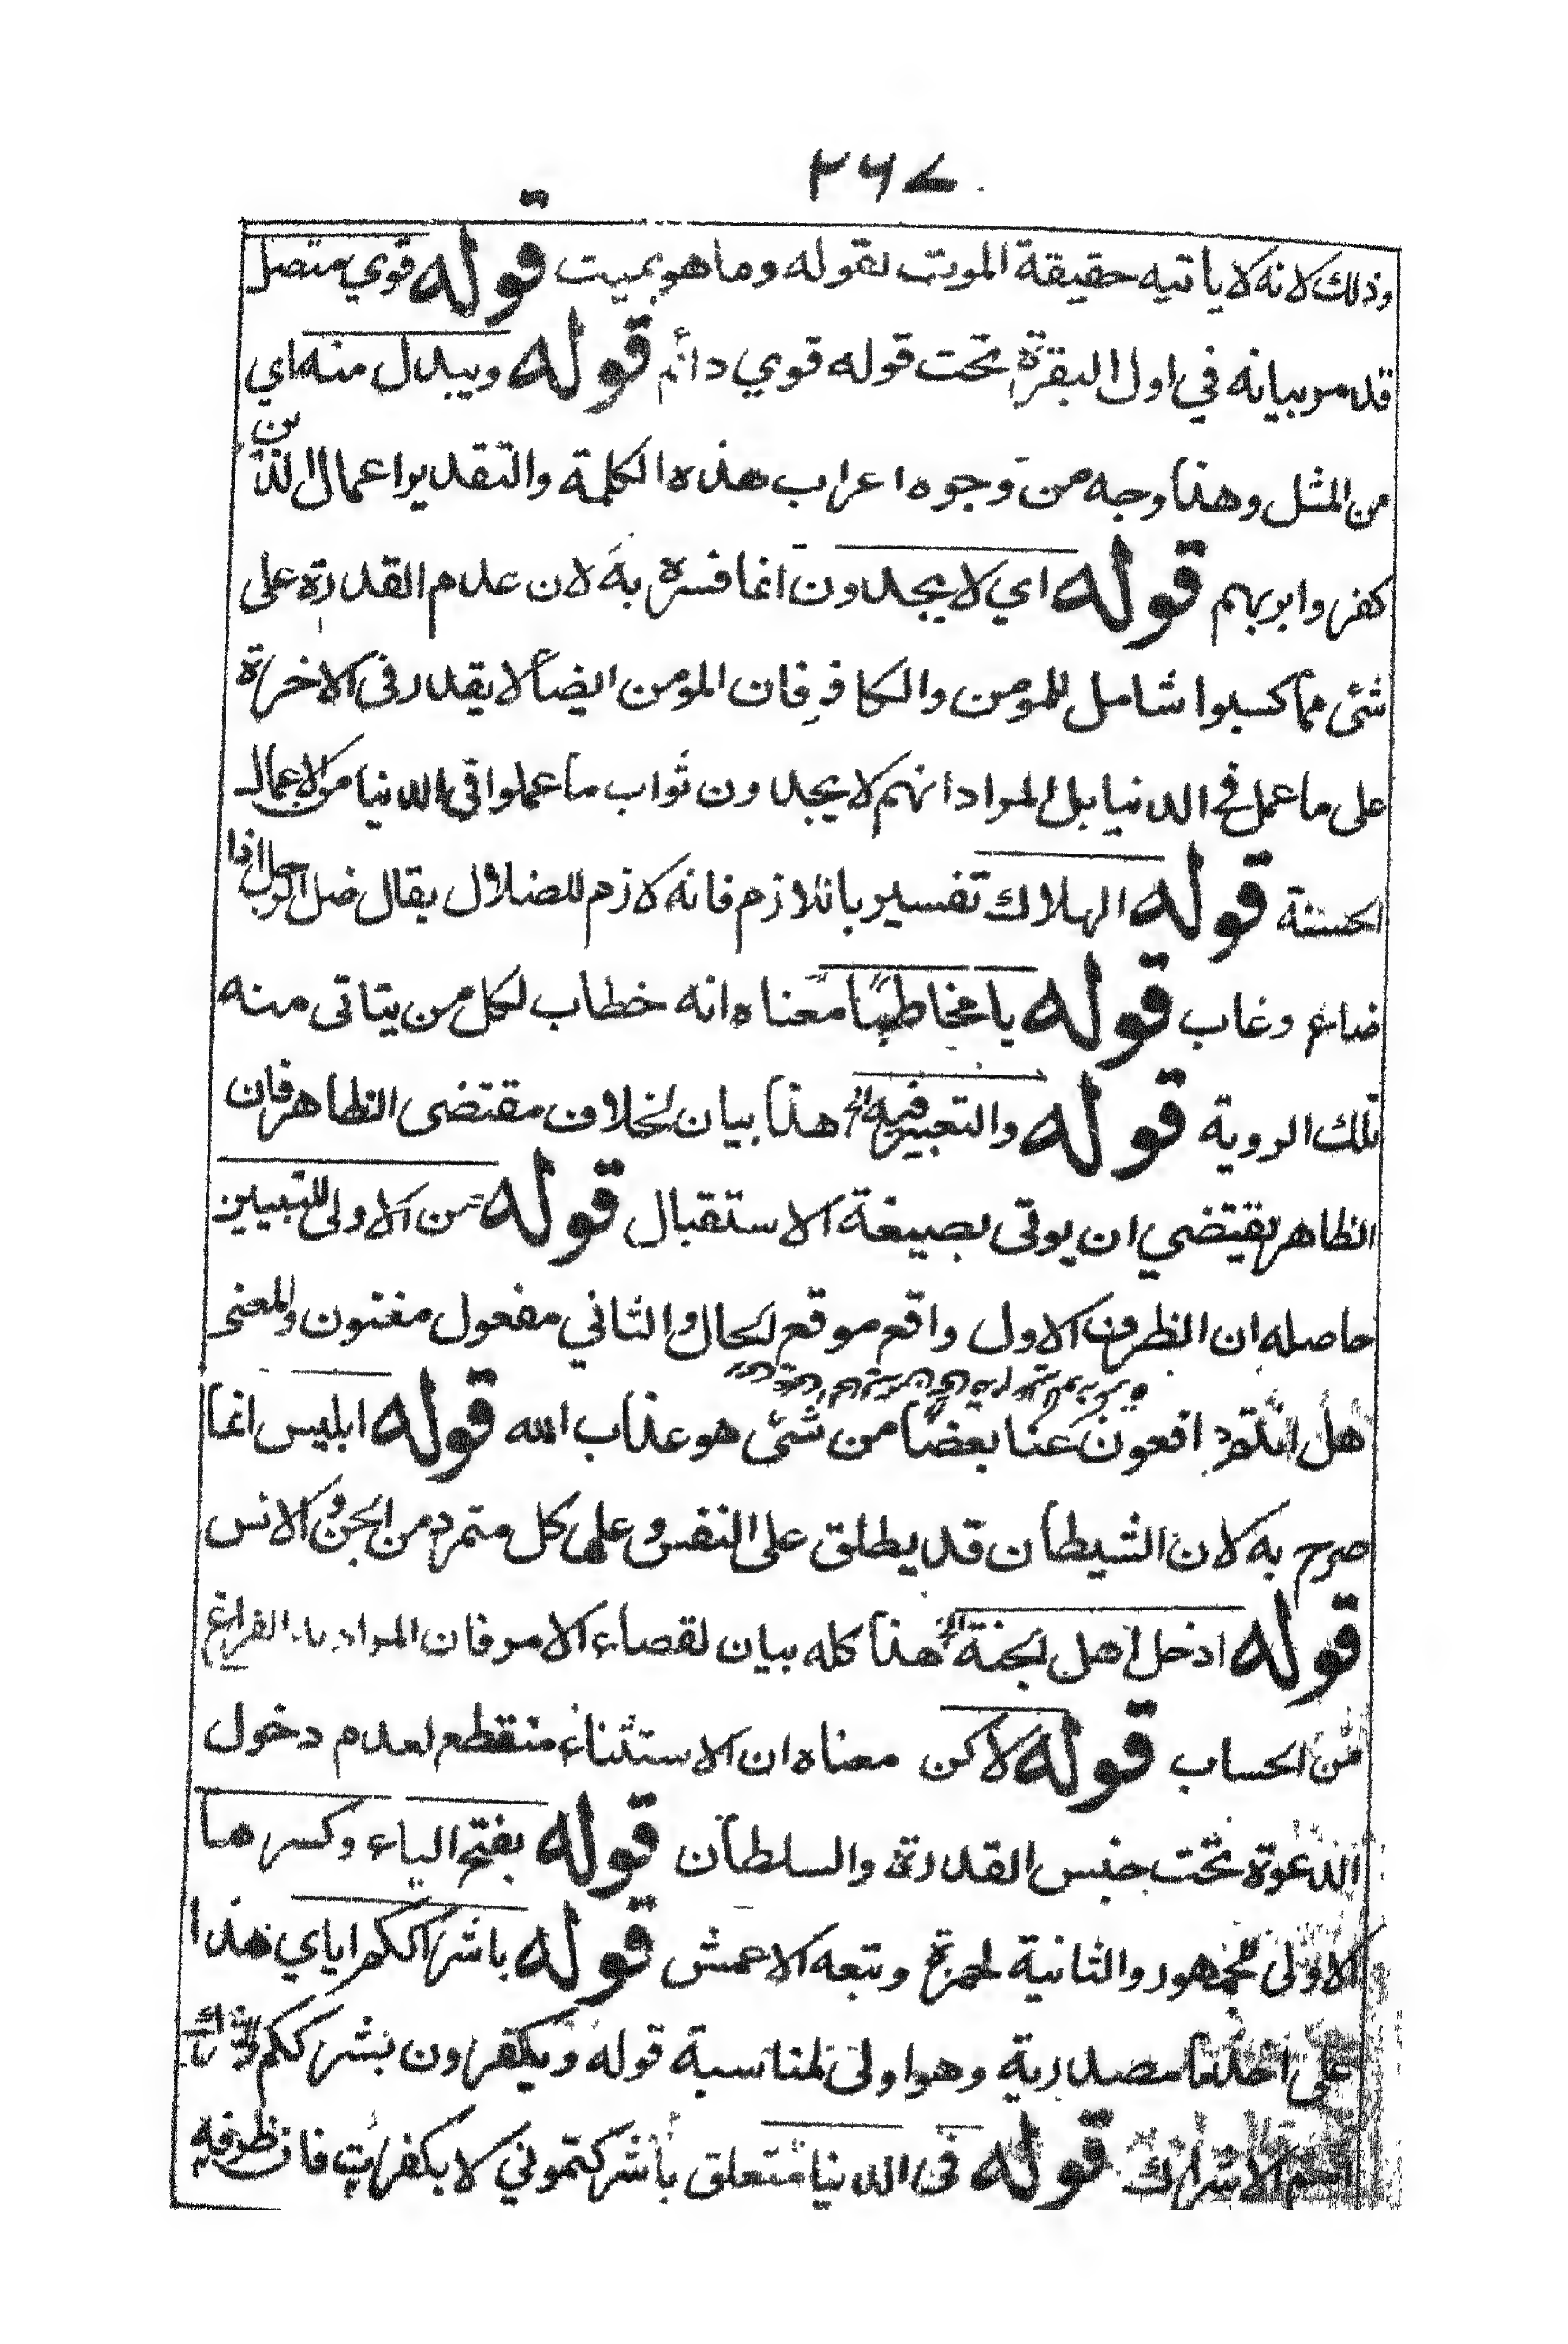 ٢٦٧
وذلك لانه لا ياتيه حقيقة الموت لقوله وما هو بميت قوله قوي متصل
قد مر بيانه في اول البقرة تحت قوله قوي دائم قوله ويبدل منه اي
من المثل وهذا وجه من وجوه اعراب هذه الكلمة والتقدير اعمال الذين
كفروا بربهم قوله اي لا يجدون انما فسره به لان عدم القدرة على
شئ مما كسبوا شامل للمومن والكافر فان المومن ايضا لا يقدر في الاخرة
على ما عمل في الدنيا بل المراد انهم لا يجدون ثواب ما عملوا في الدنيا من الاعمال
الحسنة قوله الهلاك تفسير باللازم فانه لازم للضلال يقال ضل الرجل اذا
ضاع وغاب قوله يا مخاطبا معناه انه خطاب لكل من يتاتى منه
تلك الروية قوله والتعبير فيه الخ هذا بيان لخلاف مقتضى الظاهر فان
الظاهر يقتضي ان يوتى بصيغة الاستقبال قوله من الاولى للتبيين
حاصله ان الظرف الاول واقع موقع الحال والثاني مفعول مغنون والمعنى
هل انتم دافعون عنا بعضا من شئ هو عذاب الله قوله ابليس انما
صرح به لان الشيطان قد يطلق على النفس وعلى كل متمرد من الجن والانس
قوله ادخل اهل الجنة الخ هذا كله بيان لقضاء الامر فان المراد به الفراغ
من الحساب قوله لاكن معناه ان الاستثناء منقطع لعدم دخول
الدعوة تحت جنس القدرة والسلطان قوله بفتح الياء وكسرها
الاولى للجمهور والثانية لحمزة وتبعه الاعمش قوله باشراككم اياي هذا
على اخذ ما مصدرية وهو اولى لمناسبة قوله ويكفرون بشرككم
الاشراك قوله في الدنيا متعلق باشركتموني لا بكفرت فان ظرفه